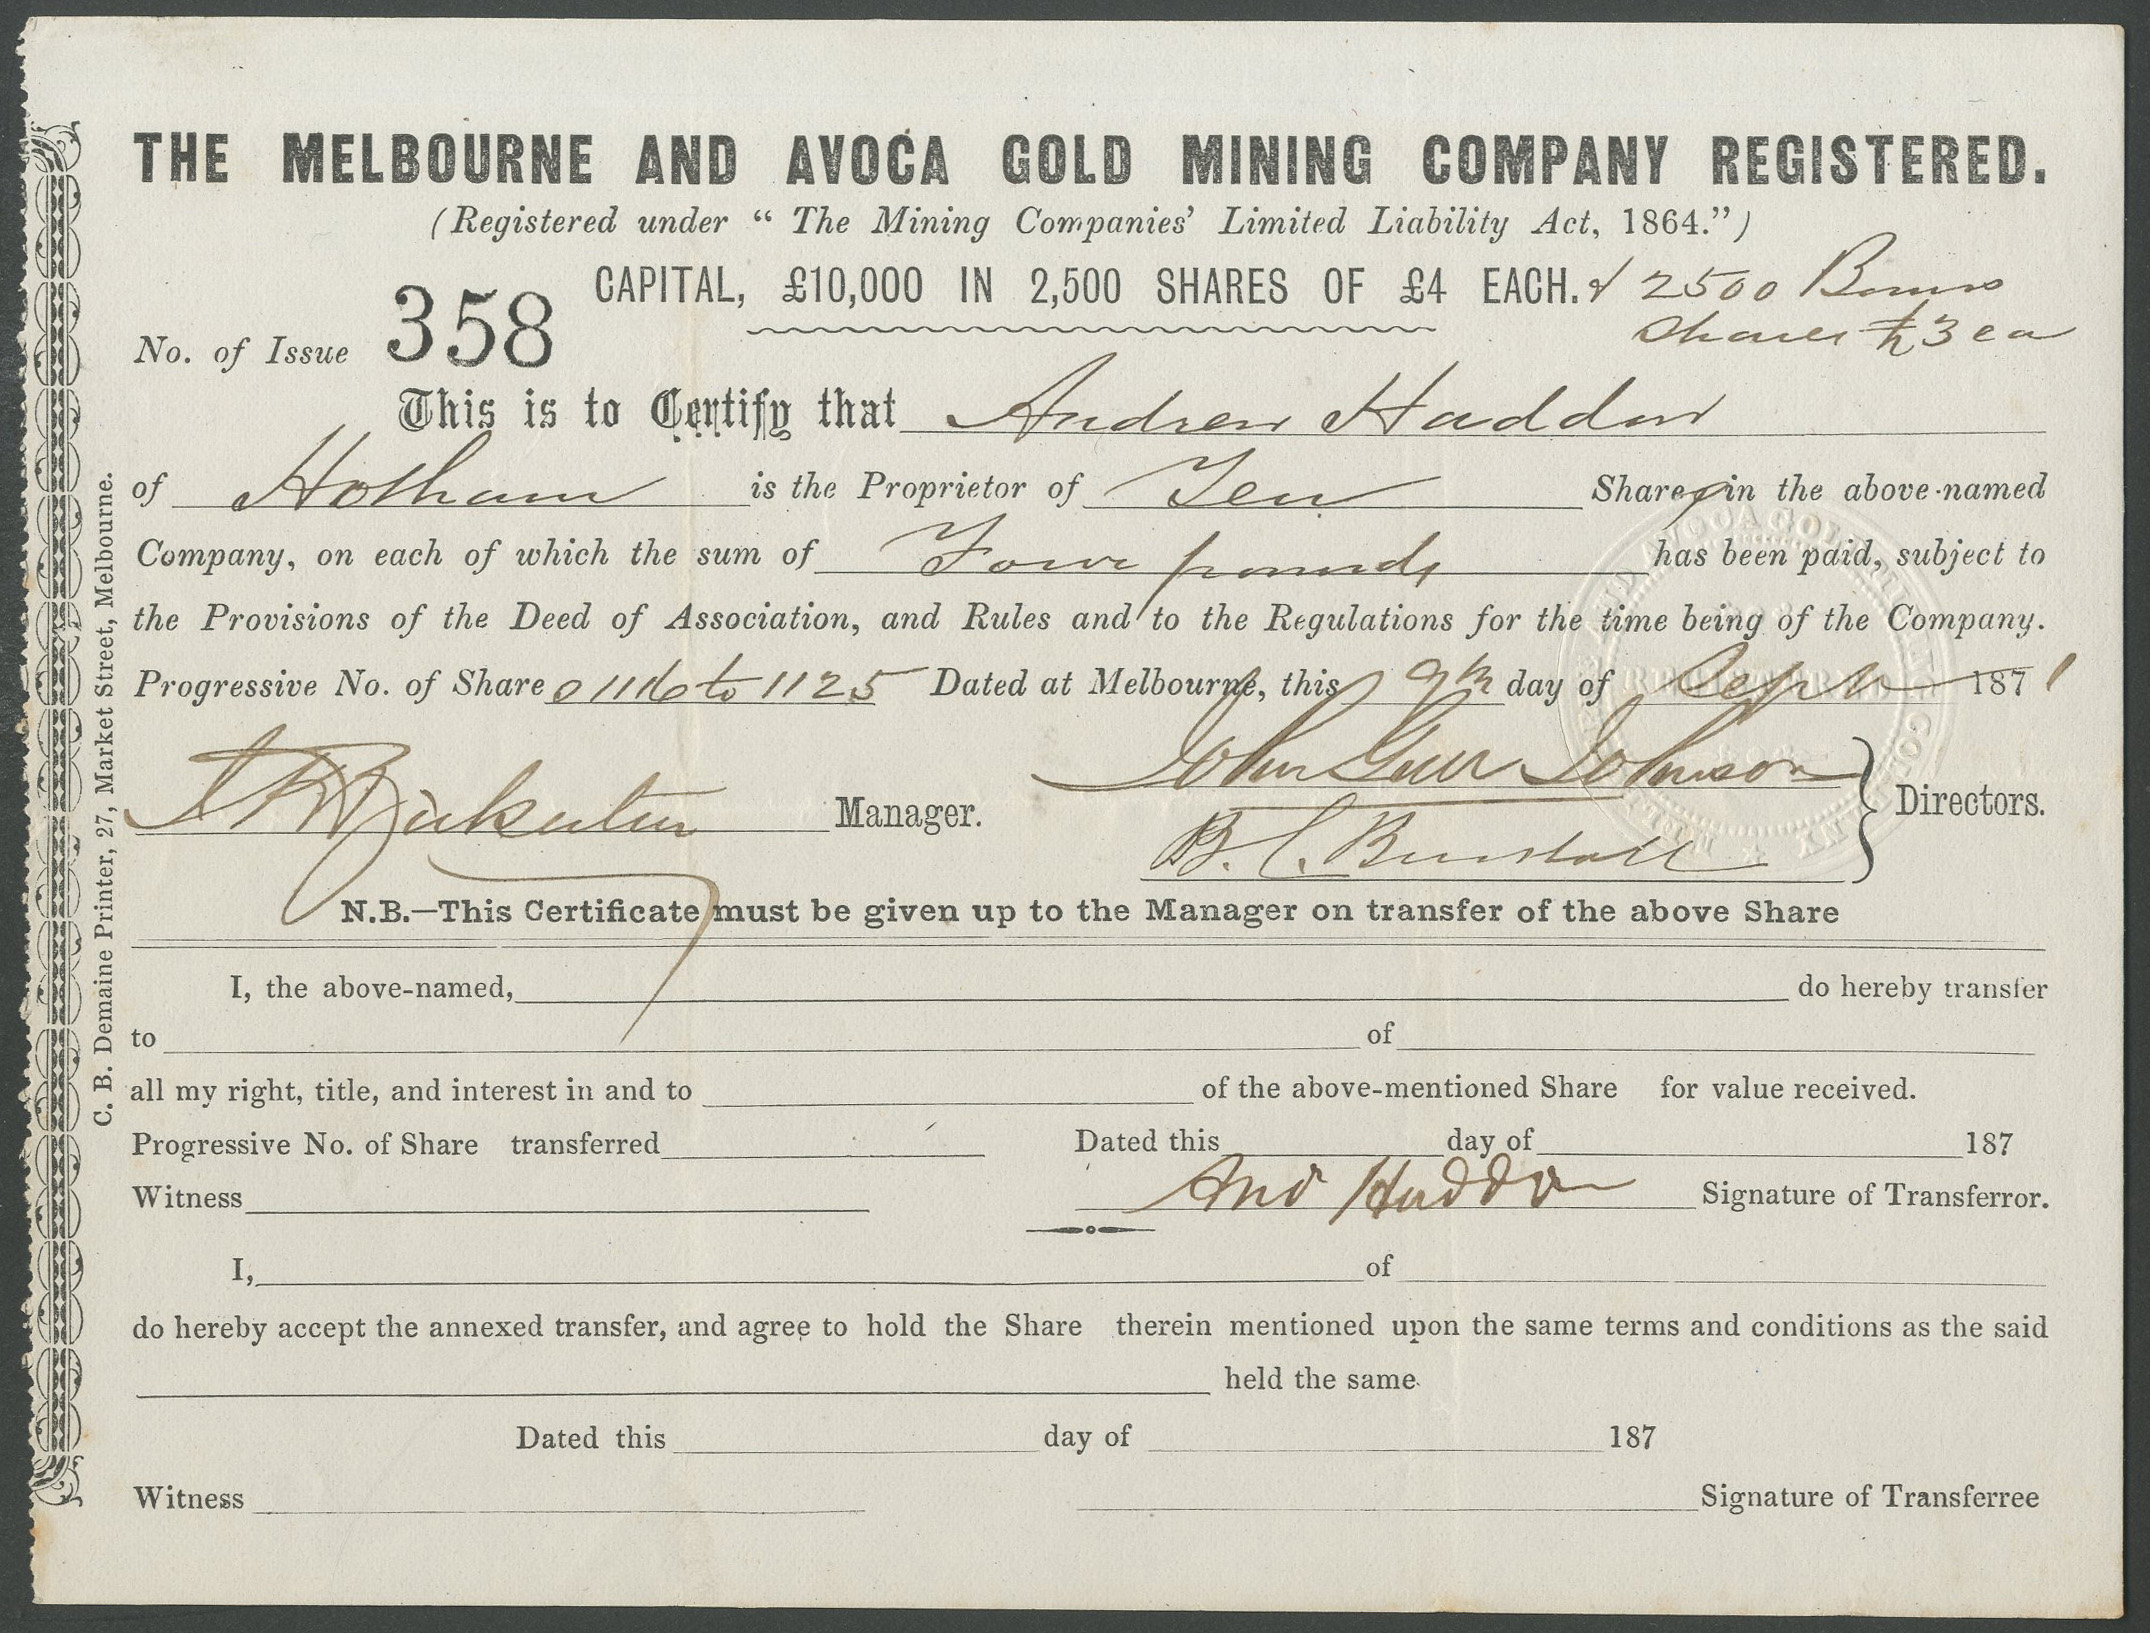 THE MELBOURNE AND AVOCA GOLD MINING COMPANY REGISTERED.
(Registered under " The Mining Companies' Limited Liability Act, 1864.")
CAPITAL, £10,000 IN 2,500 SHARES OF £4 EACH. & 2500 Bonus
Shares £3 ea
No. of Issue 358
This is to Certify that Andrew Haddon
of Hotham is the Proprietor of Ten Shares in the above-named
Company, on each of which the sum of Four pounds has been paid, subject to
the Provisions of the Deed of Association, and Rules and to the Regulations for the time being of the Company.
Progressive No. of Share s 1116 to 1125 Dated at Melbourne, this 9th day of Septr 1871
Manager.
John Johnson
B. C. Directors.
N.B.—This Certificate must be given up to the Manager on transfer of the above Share
I, the above-named, do hereby transfer
to of
all my right, title, and interest in and to of the above-mentioned Share for value received.
Progressive No. of Share transferred Dated this day of 187
Witness And Haddon Signature of Transferror.
I, of
do hereby accept the annexed transfer, and agree to hold the Share therein mentioned upon the same terms and conditions as the said
held the same.
Dated this day of 187
Witness Signature of Transferree
C. B. Demaine Printer, 27, Market Street, Melbourne.
AND AVOCA GOLD MINING
REGISTERED